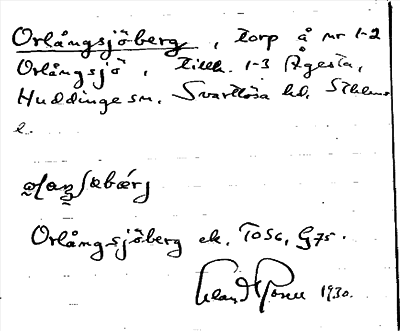 Orlångsjöberg, torp å nr 1-2
Orlångsjö, tillh. 1-3 Ågesta,
Huddinge sn. Svartlösa hd. Sthlms
l.
Orlångsjöberg ek. To56, G75.
1930.